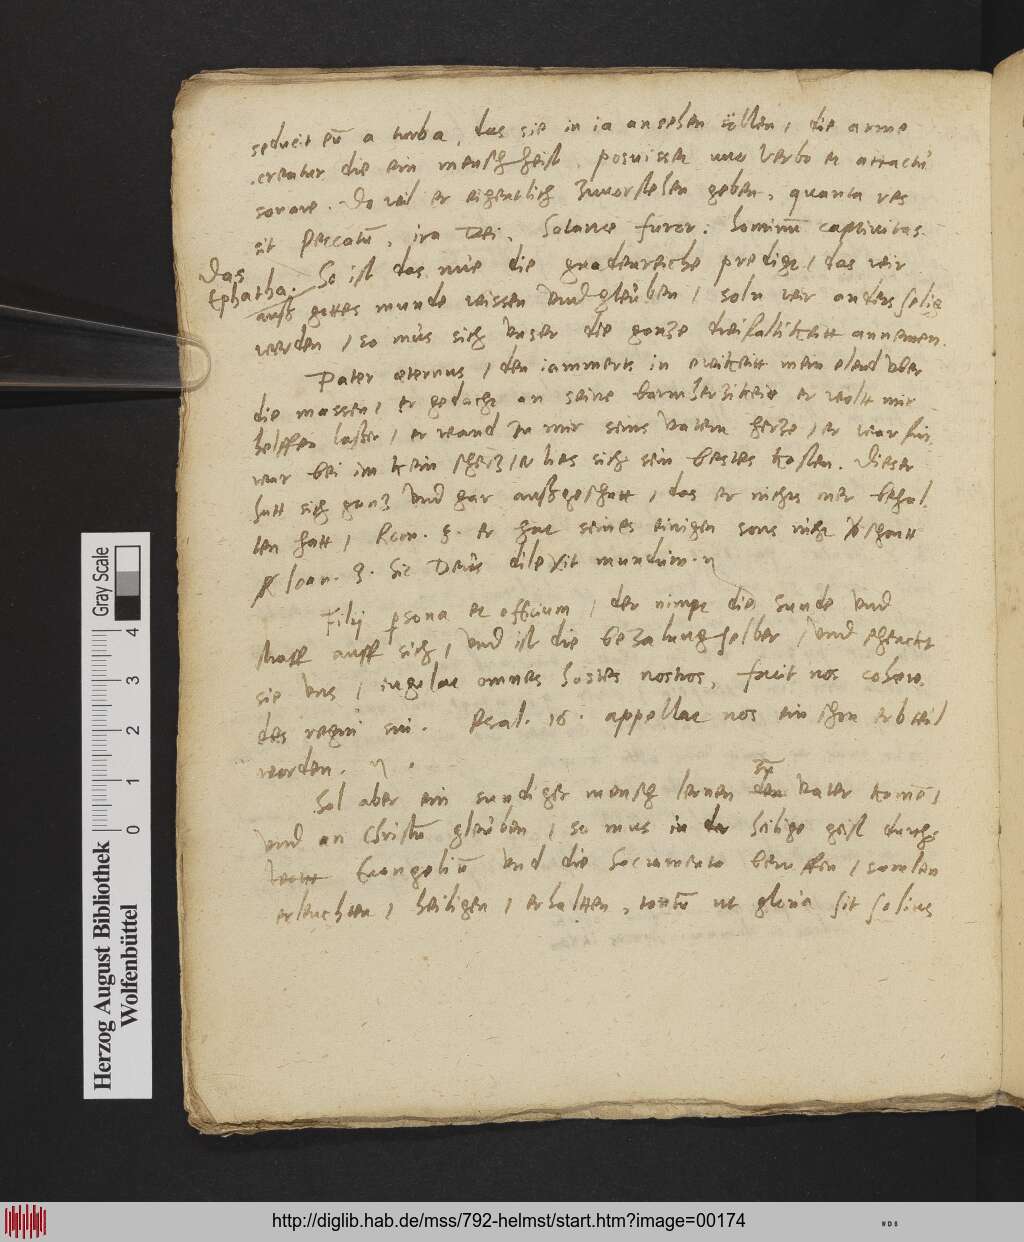 seducit eū a turba, das sie in ia ansehen söllen, die arme
creatur die ein mensch heist, posuisset uno verbo et attactū
sonare. Do wil er eigentlich zuvorstehen geben, quanta res
sit Peccatū, ira Dei, Satanae furor, hominū captivitas.
Das
Ephatha.
So ist das nue die gnadenreiche predigt, das wir
auß gottes munde wissen und gleuben, soln wir anders selig
werden, so mus sich unser die gantze dreifaltikeitt annemen.
Pater aeternus, den iammerts in ewikeitt mein elend uber
die massen, er gedacht an seine barmhertzikeitt er woltt mir
helffen laßen, er wand zu mir seins vatern hertze, er war fur
war bei im kein schertz, er lies sich sein bestes kosten. Dieser
hatt sich gantz und gar außgeschutt, das er nichts mer behal
ten hatt, Rom. 8. er hat seines einigen sons nicht vschontt
Ioan. 3. Sic Deus dilexit mundum.
Filij psona et officium, der nimpt die sunde und
straff auff sich, und ist die bezalung selber, und schenckt
sie uns, iugulat omnes hostes nostros, facit nos cohere
des regni sui. Psal. 16. appellat nos ein schon erbteil
worden.
Sol aber ein sundiger mensch lernen den zū vater komē,
und an Christū gleuben, so mus in der heilige geist durchs
wortt Evangeliū und die Sacramenta beruffen, samlen
erleuchten, heiligen, erhaltten, tantū ut gloria sit solius
Gray Scale
4
3
2
1
0
Herzog August Bibliothek
Wolfenbüttel
http://diglib.hab.de/mss/792-helmst/start.htm?image=00174